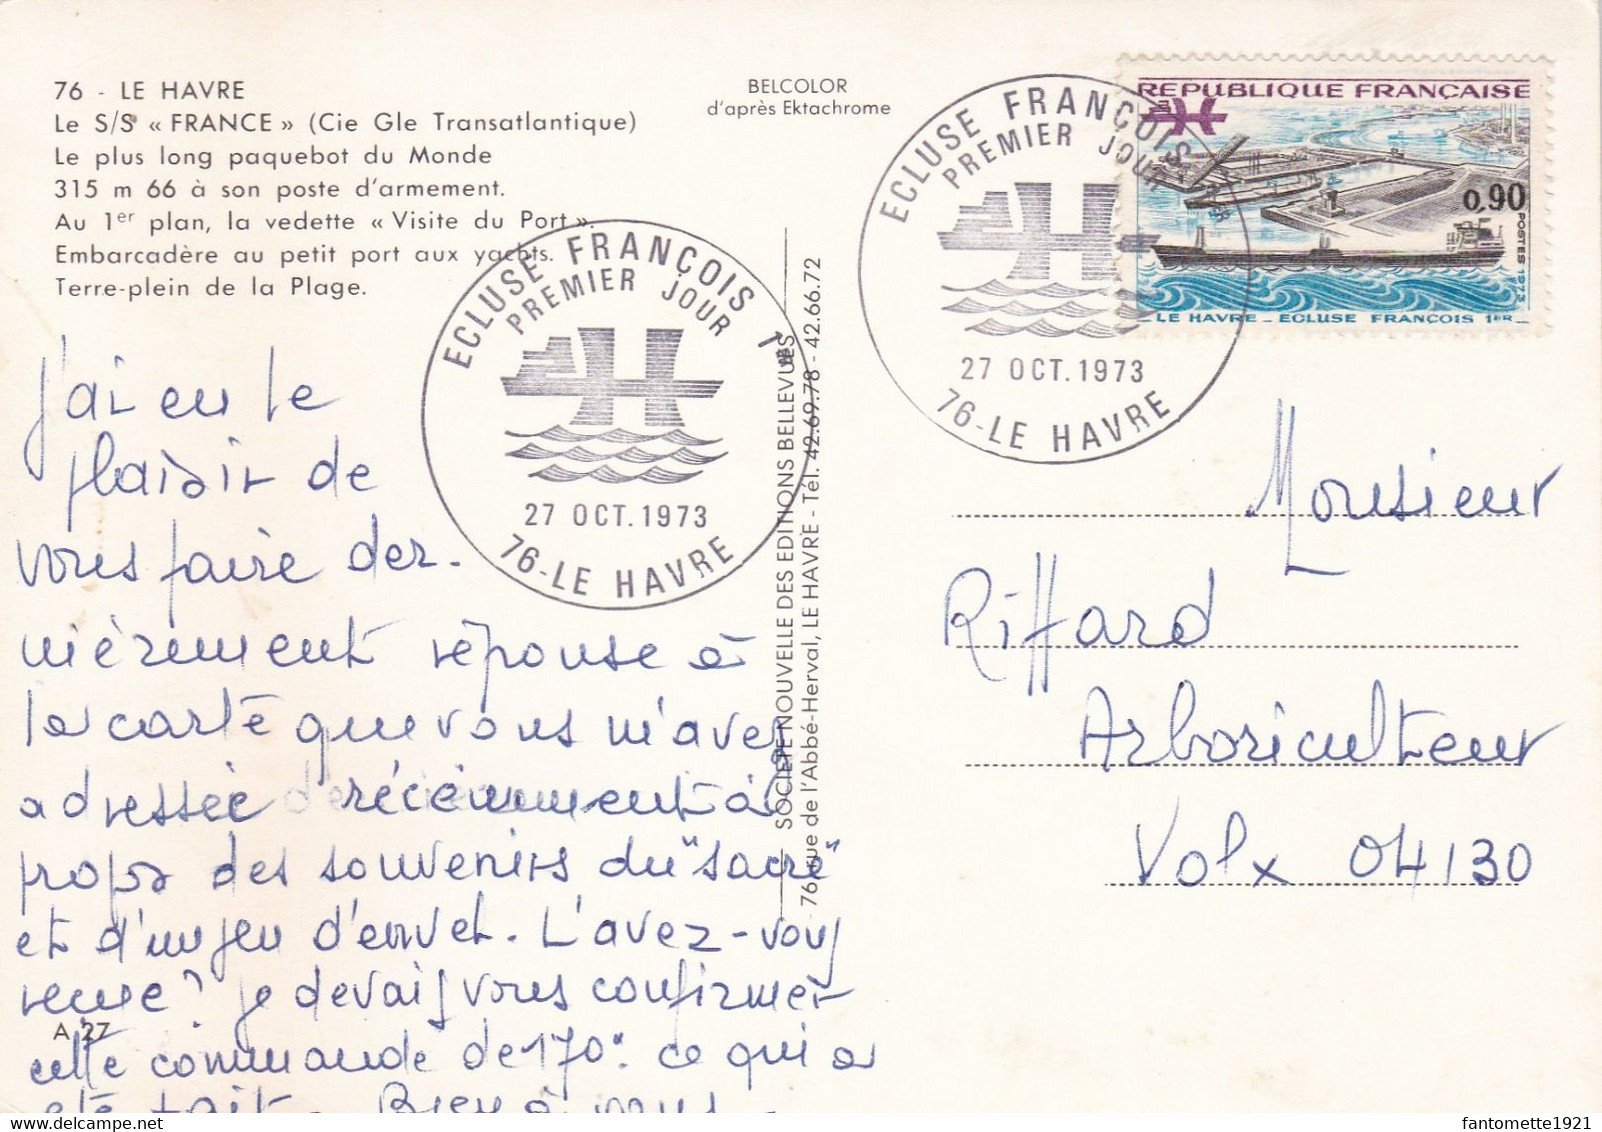 76 - LE HAVRE
Le S/S « FRANCE » (Cie Gle Transatlantique)
Le plus long paquebot du Monde
315 m 66 à son poste d'armement.
Au 1er plan, la vedette « Visite du Port ».
Embarcadère au petit port aux yachts.
Terre-plein de la Plage.
BELCOLOR
d'après Ektachrome
ECLUSE FRANÇOIS 1er
PREMIER JOUR
27 OCT. 1973
76-LE HAVRE
ECLUSE FRANÇOIS
PREMIER JOUR
27 OCT. 1973
76-LE HAVRE
REPUBLIQUE FRANÇAISE
0,90
POSTES 1973
LE HAVRE _ ECLUSE FRANÇOIS 1ER
SOCIETE NOUVELLE DES EDITIONS BELLEVUES
76, rue de l'Abbé-Herval, LE HAVRE - Tél. 42.69.78 - 42.66.72
J'ai eu le
plaisir de
vous faire der-
nièrement réponse à
la carte que vous m'avez
adressée récemment à
propos des souvenirs du "sacre"
et d'un jeu d'envel. L'avez-vous
reçue? je devais vous confirmer
cette commande de 170. ce qui a
été fait. Bien à vous
A 27
Monsieur
Riffard
Arboriculteur
Volx 04130
fantomette1921